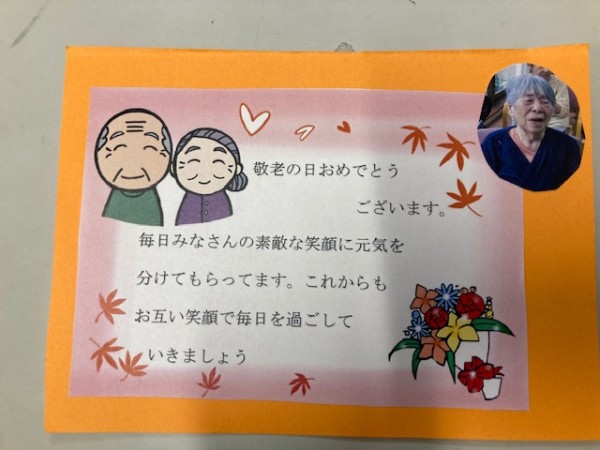 敬老の日おめでとう
ございます。
毎日みなさんの素敵な笑顔に元気を
分けてもらってます。これからも
お互い笑顔で毎日を過ごして
いきましょう